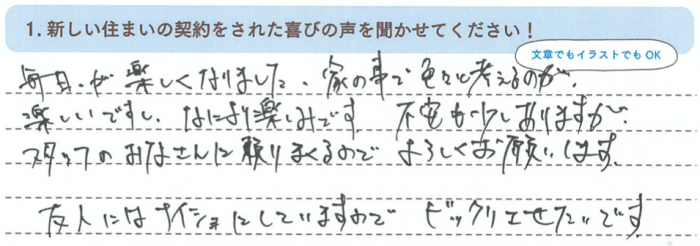 1. 新しい住まいの契約をされた喜びの声を聞かせてください！
文章でもイラストでもOK
毎日が楽しくなりました、家の事で色々と考えるのが、
楽しいですし、なにより楽しみです 不安も少しありますが、
スタッフのみなさんに頼りまくるので よろしくお願いします。
友人にはナイショにしていますので ビックリさせたいです